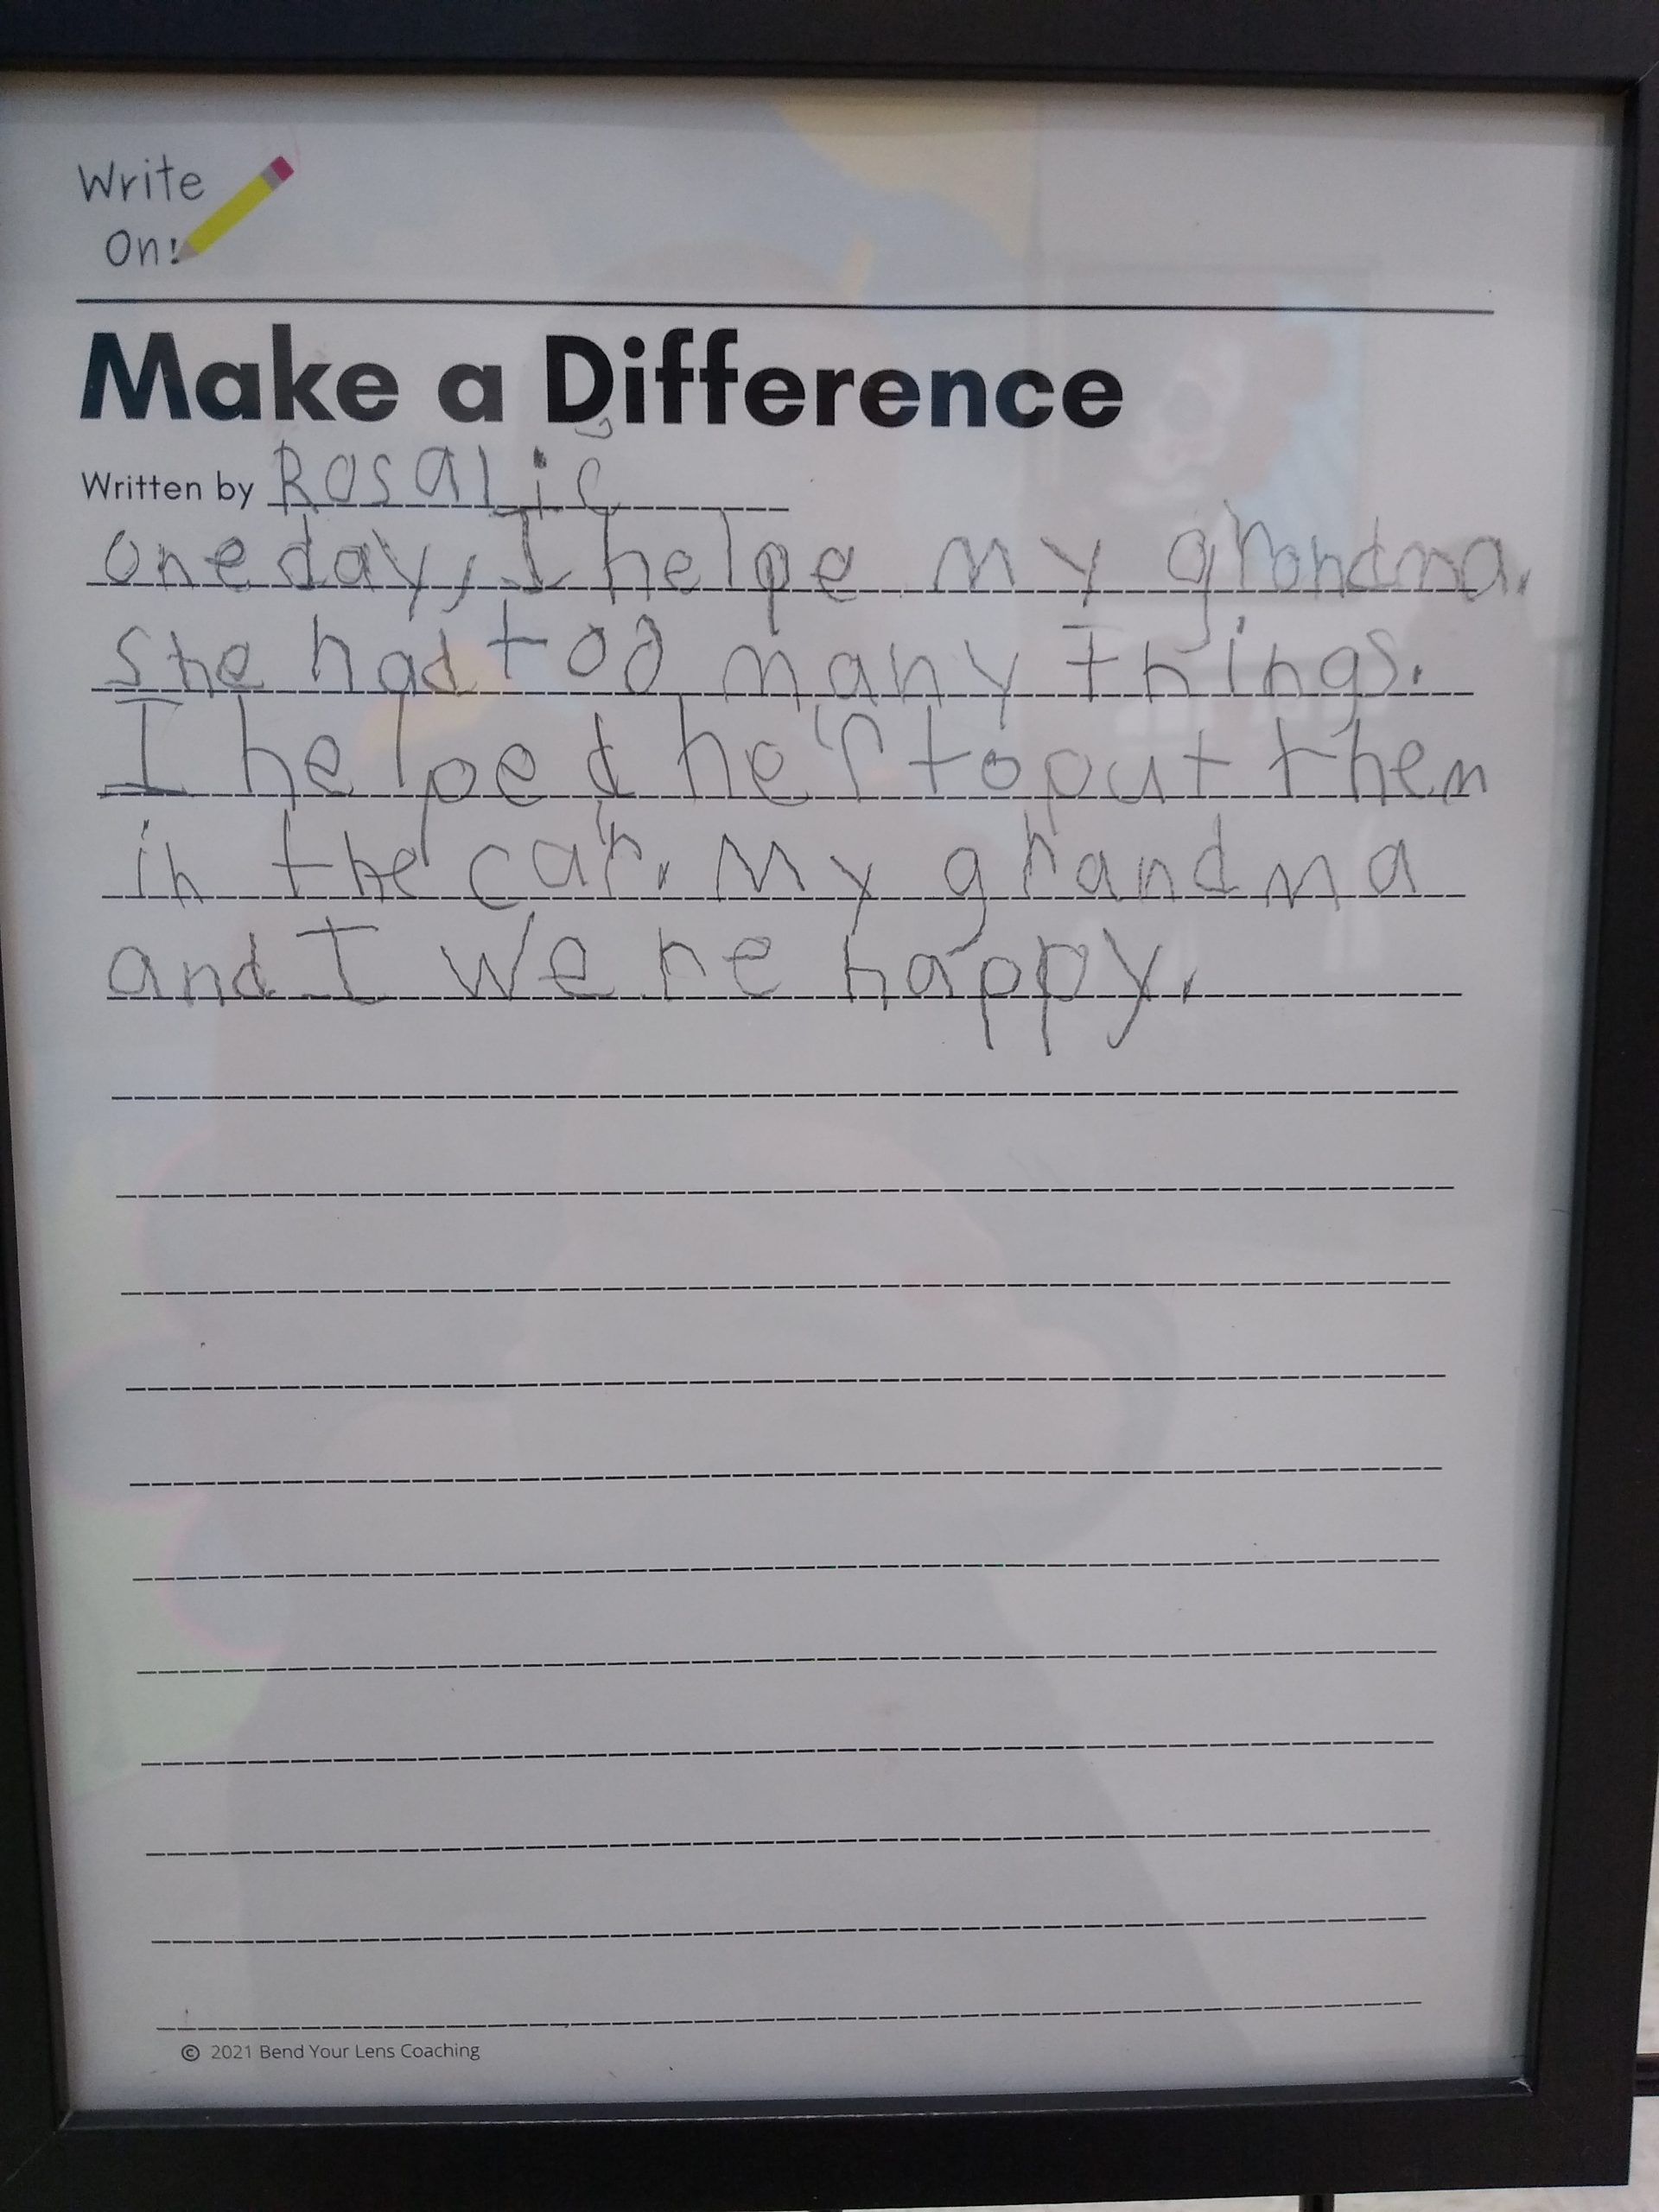 Write
On!
Make a Difference
Written by Rosalie
one day, I helpe my grandma.
She had too many things.
I helped her to put them
in the car. My grandma
and I were happy.
© 2021 Bend Your Lens Coaching